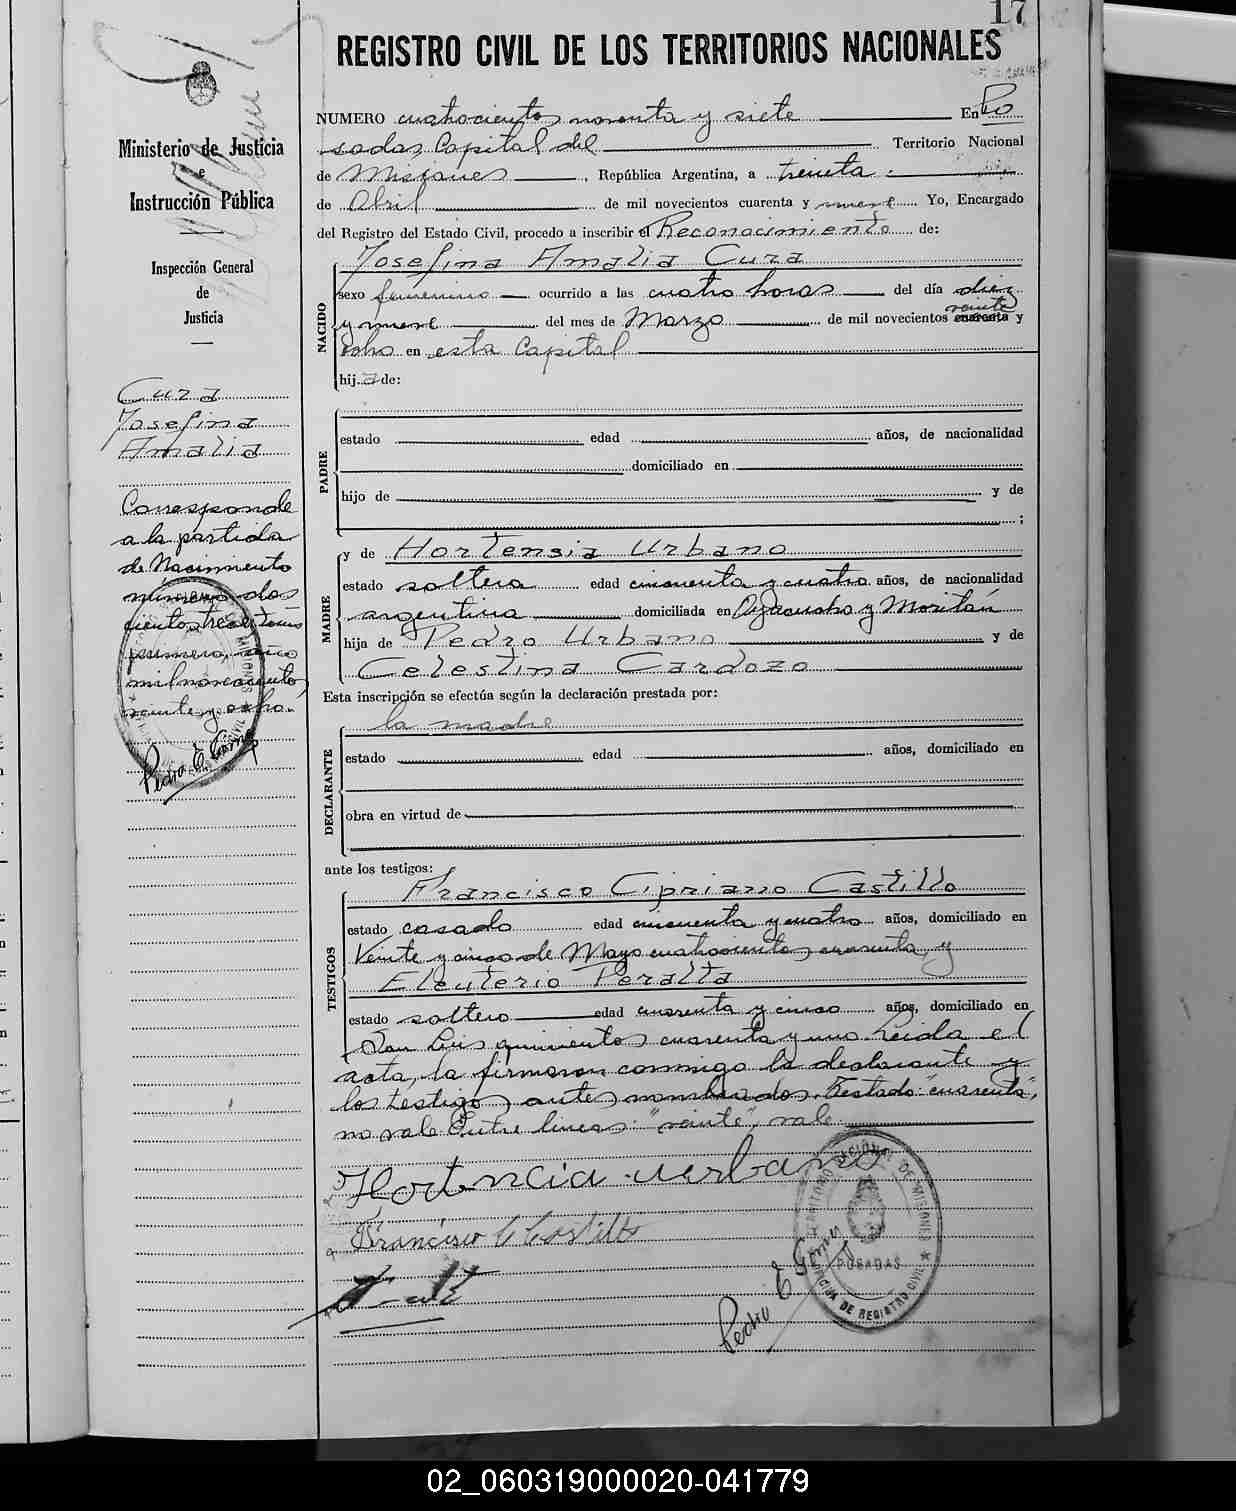 17
REGISTRO CIVIL DE LOS TERRITORIOS NACIONALES
Ministerio de Justicia
e
Instrucción Pública
Inspección General
de
Justicia
Cura
Josefina
Amalia
Corresponde
a la partida
de Nacimiento
número dos
cientos treinta
primero, año
mil novecientos
veinte y ocho.
Pedro E Gómez
NUMERO cuatrocientos noventa y siete En Po
sadas Capital del Territorio Nacional
de Misiones, República Argentina, a treinta
de Abril de mil novecientos cuarenta y nueve Yo, Encargado
del Registro del Estado Civil, procedo a inscribir el Reconocimiento de:
NACIDO
Josefina Amalia Cura
sexo femenino ocurrido a las cuatro horas del día diez
y nueve del mes de Marzo de mil novecientos cuarenta veinte y
ocho en esta Capital
hija de:
PADRE
estado edad años, de nacionalidad
domiciliado en
hijo de y de
;
MADRE
y de Hortensia Urbano
estado soltera edad cincuenta y cuatro años, de nacionalidad
argentina domiciliada en Ayacucho y Moritán
hija de Pedro Urbano y de
Celestina Cardozo
Esta inscripción se efectúa según la declaración prestada por:
DECLARANTE
la madre
estado edad años, domiciliado en
obra en virtud de
ante los testigos:
TESTIGOS
Francisco Cipriano Castillo
estado casado edad cincuenta y cuatro años, domiciliado en
Veinte y cinco de Mayo cuatrocientos cuarenta y
Eleuterio Peralta
estado soltero edad cuarenta y cinco años, domiciliado en
San Luis quinientos cuarenta y uno. Leida el
acta, la firmaron conmigo la declarante y
los testigos antes nombrados. Testado: "cuarenta",
no vale. Entre lineas: "veinte", vale
Hortencia urbano
Francisco C Castillo
Pedro E Gómez
TERRITORIO NACIONAL DE MISIONES
POSADAS
OFICINA DE REGISTRO CIVIL
02_060319000020-041779